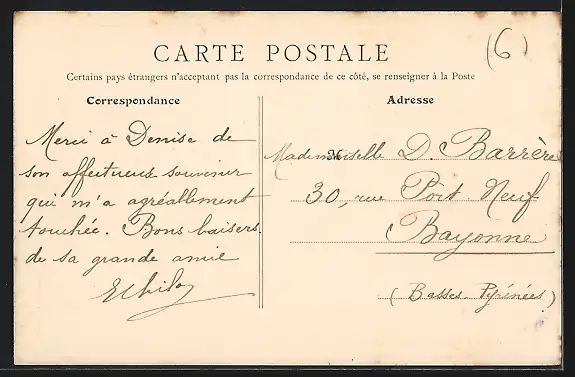 (6)
CARTE POSTALE
Certains pays étrangers n'acceptant pas la correspondance de ce côté, se renseigner à la Poste
Correspondance
Adresse
Merci à Denise de
son affectueux souvenir
qui m'a agréablement
touchée. Bons baisers
de sa grande amie
Mademoiselle D. Barrère
30, rue Port Neuf
Bayonne
(Basses Pyrénées)